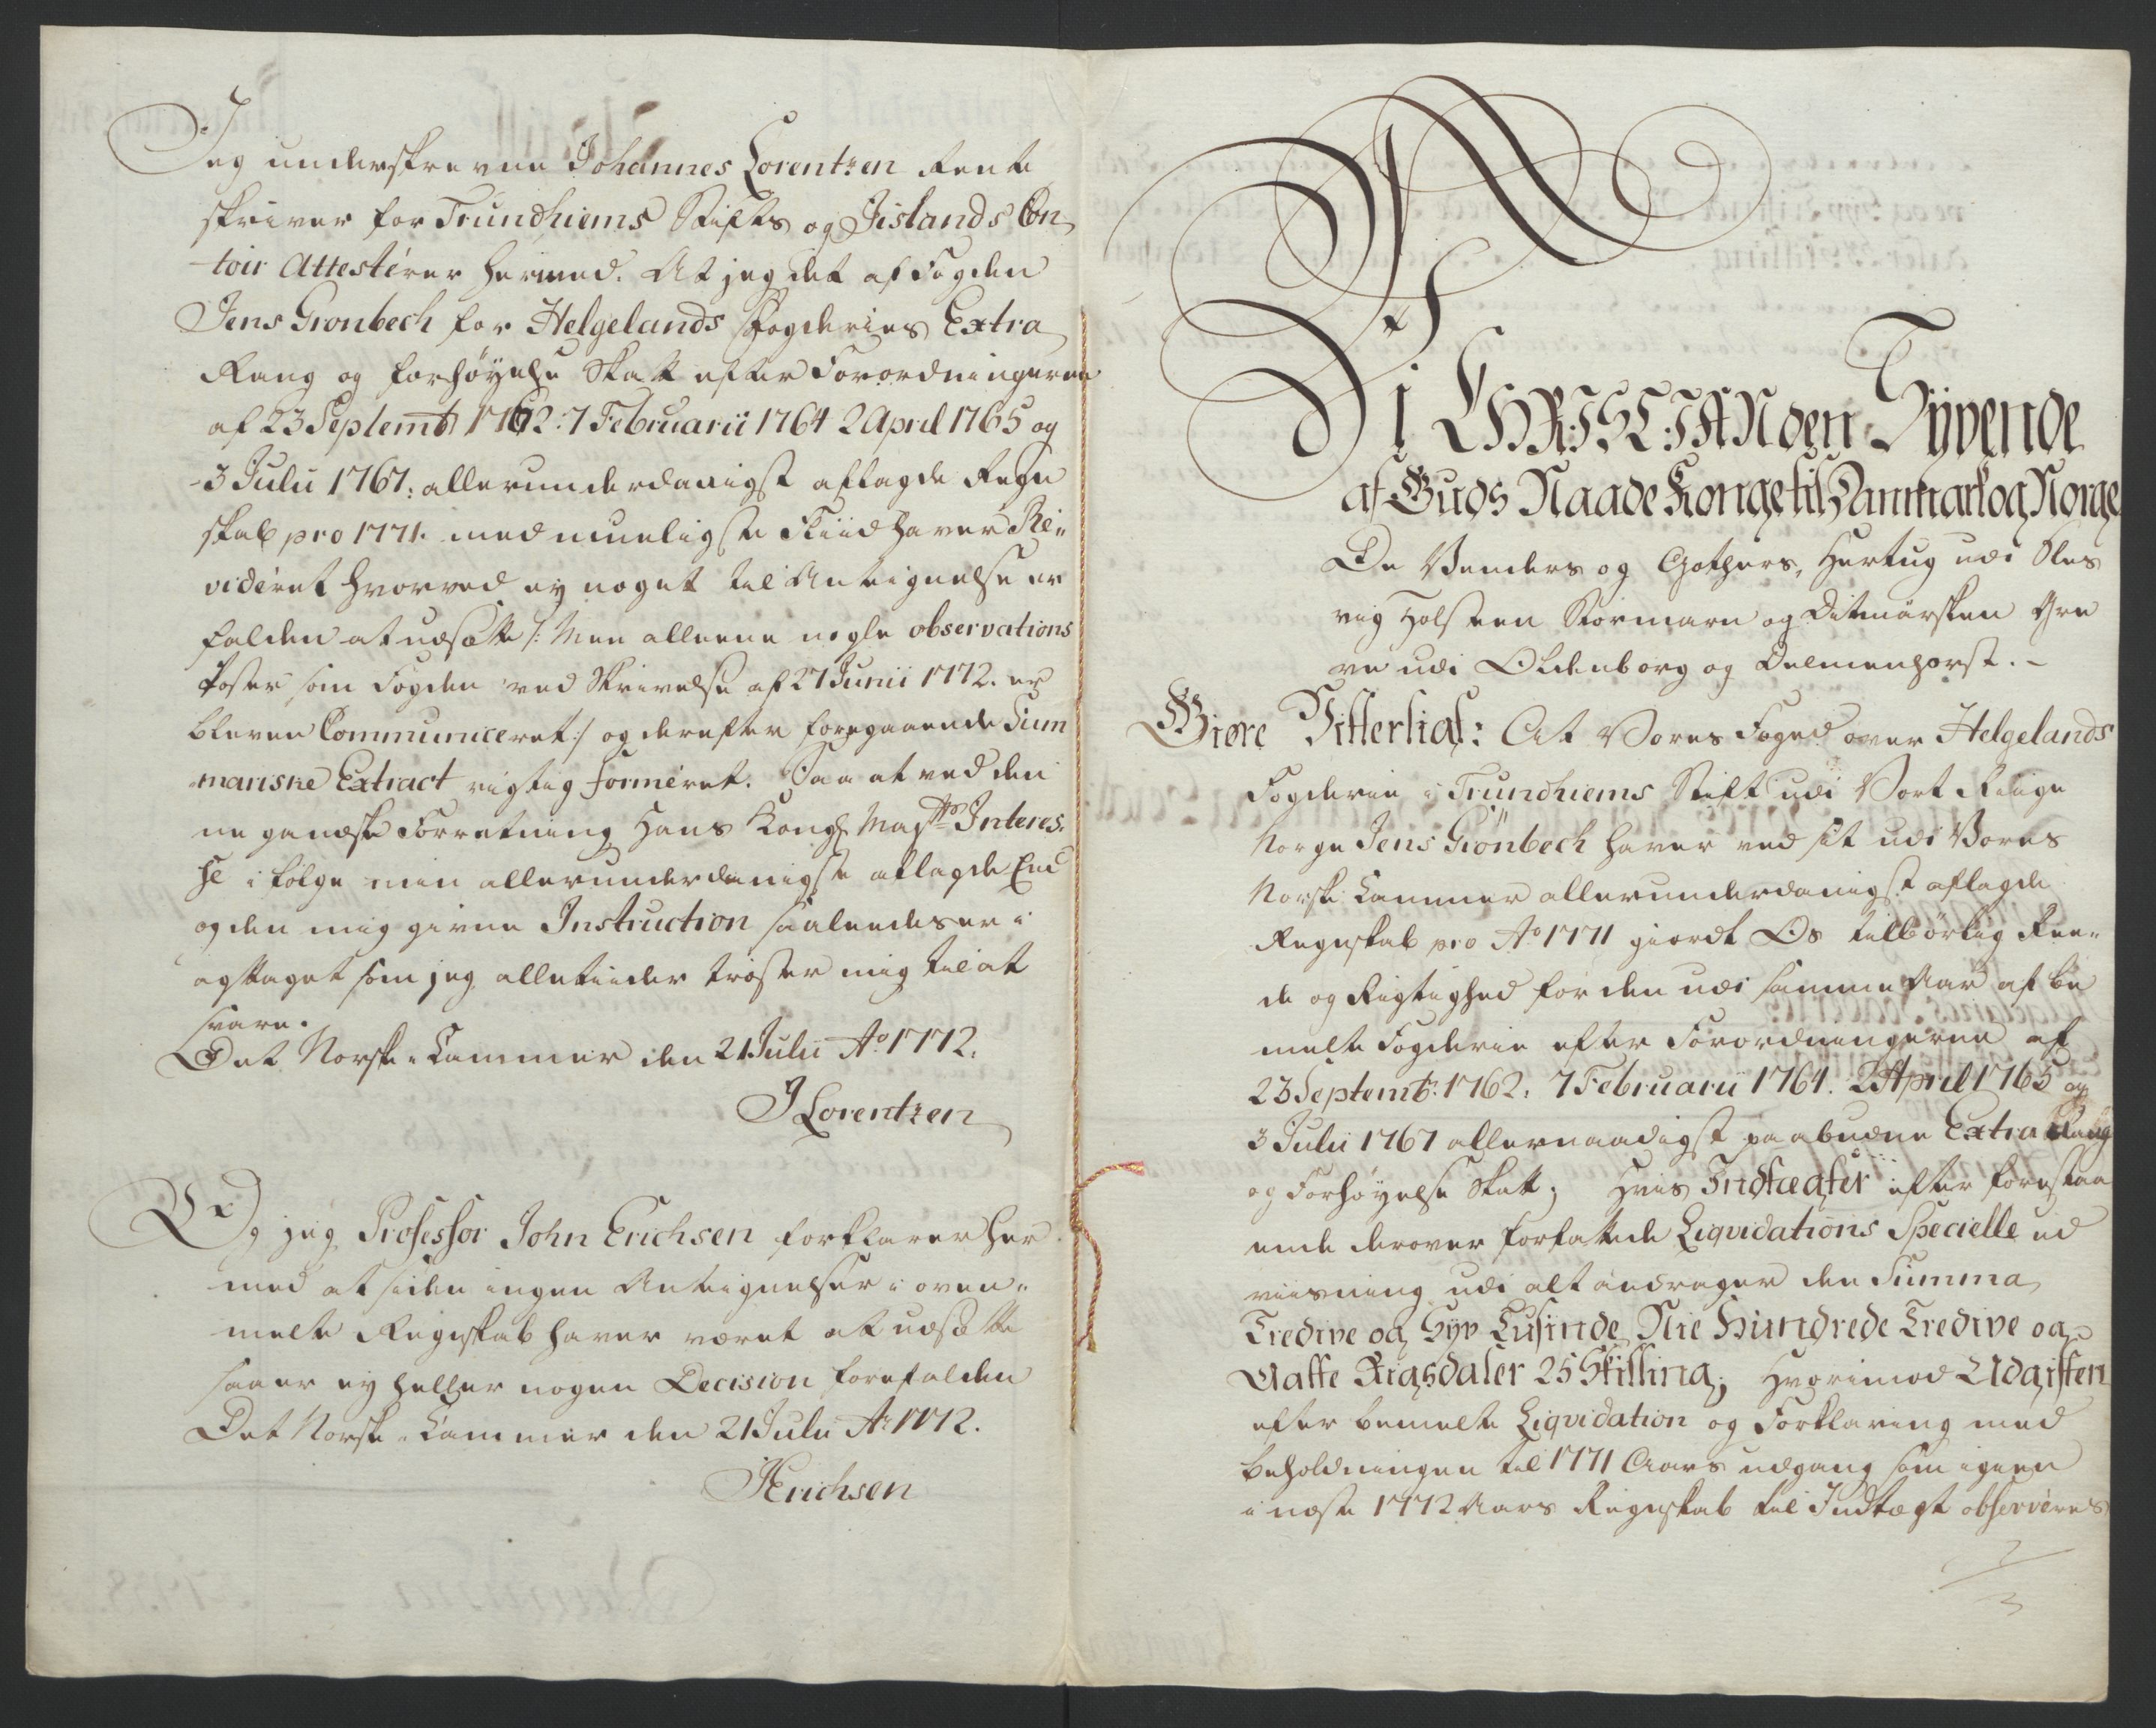 Jeg underskrevne Johannes Lorentzen Rente
skriver for Trundhiems Stifts og Jislands Con
toir Attesterer hermed. At jeg det af Fogden
Jens Gronbech for Helgelands Fogderies Extra
Rang og forhøyelse Skatt efter Forordningerne
af 23 Septemb 1762: 7 Februarii 1764 2 April 1765 og
3 Julii 1767. allerunderdanigst aflagde Regn
skab pro 1771. med mueligste Fliid haver Re„
videret hvorved ej noget til Antegnelse er
falden at udsætte /: Men alleene nogle observations
Poster som Fogden ved Skrivelse af 27 Junii 1772. er
bleven Communiceret :/ og derefter foregaaende Sum
mariske Extract rigtig formeret. Saa at ved den
ne gandske Forretning Hans Kongl Mayts Interes„
se i følge min allerunderdanigste aflagde Eed
og den mig givne Instruction saaleedes er i
agttaget som jeg alletiider trøster mig til at
svare.
Det Norske Cammer den 21 Julii Ao 1772.
J Lorentzen
Og jeg Professor John Erichsen forklarer her
med at siden ingen Antegnelser i oven„
melte Regnskab haver været at udsætte
saa er ej heller nogen Decision forefalden
Det Norske Cammer den 21 Julii Ao 1772.
J Erichsen
Vi CHRISTIAN den Syvende
af Guds Naade Konge til Danmark og Norge
De Venders og Gothers, Hertug udi Sles
vig Holsteen Stormarn og Ditmarsken Gre
ve udi Oldenborg og Delmenhorst. -
Giøre Vitterligt: At Vores Foged over Helgelands
Fogderie i Trundhiems Stift udi Vort Riige
Norge Jens Grönbech haver ved sit udi Vores
Norske Cammer allerunderdanigst aflagde
Regnskab pro Ao 1771 giordt Os tilbørlig Ree„
de og Rigtighed for den udi samme Aar af be
melte Fogderie efter Forordningerne af
23 Septemb: 1762. 7 Februarii 1764. 2 April 1765 og
3 Julii 1767 allernaadigst paabudne Extra Rang
og Forhøyelse Skatt; Hvis Indtægter efter forestaa
ende derover forfattede Liqvidations Specielle ud
viisning udi alt andrager den Summa
Tredive og Syv Tusinde Nie Hundrede Tredive og
Aatte Rigsdaler 25 Skilling; Hvorimod Udgiften
efter bemelte Liqvidation og Forklaring med
beholdningen til 1771 Aars udgang som igien
i næste 1772 Aars Regnskab til Indtægt observeres